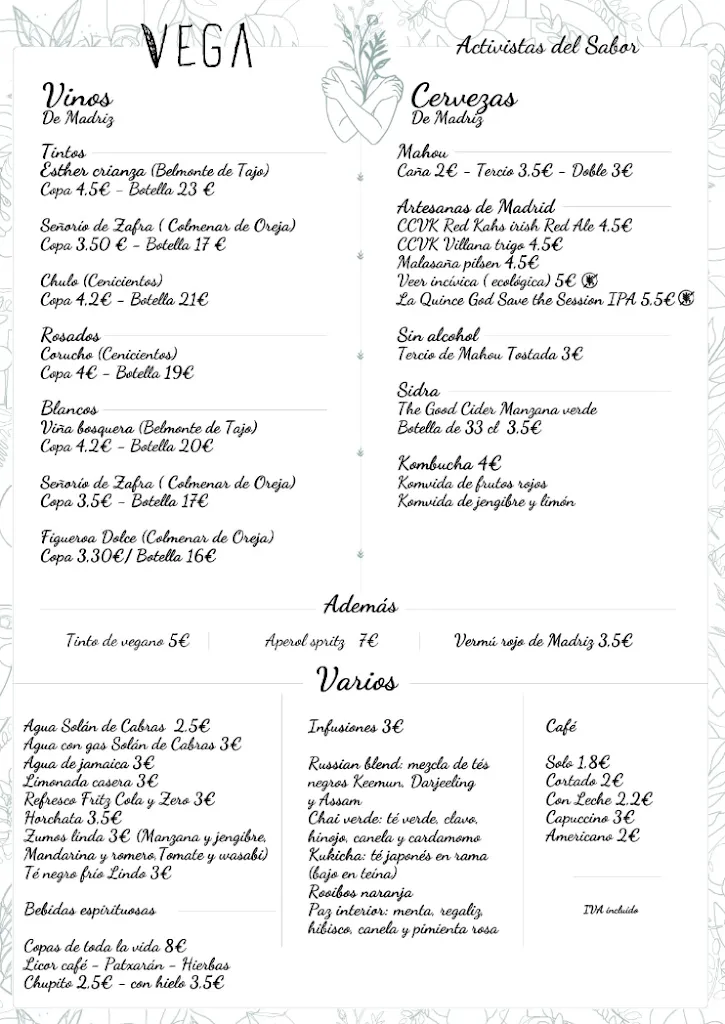 VEGA
Activistas del Sabor
Vinos
De Madriz
Tintos
Esther crianza (Belmonte de Tajo)
Copa 4,5€ - Botella 23 €
Señorío de Zafra ( Colmenar de Oreja)
Copa 3,50 € - Botella 17 €
Chulo (Cenicientos)
Copa 4,2€ - Botella 21€
Rosados
Corucho (Cenicientos)
Copa 4€ - Botella 19€
Blancos
Viña bosquera (Belmonte de Tajo)
Copa 4,2€ - Botella 20€
Señorío de Zafra ( Colmenar de Oreja)
Copa 3,5€ - Botella 17€
Figueroa Dolce (Colmenar de Oreja)
Copa 3,30€/ Botella 16€
Cervezas
De Madriz
Mahou
Caña 2€ - Tercio 3,5€ - Doble 3€
Artesanas de Madrid
CCVK Red Kahs irish Red Ale 4,5€
CCVK Villana trigo 4,5€
Malasaña pilsen 4,5€
Veer incívica ( ecológica) 5€
La Quince God Save the Session IPA 5,5€
Sin alcohol
Tercio de Mahou Tostada 3€
Sidra
The Good Cider Manzana verde
Botella de 33 cl 3,5€
Kombucha 4€
Komvida de frutos rojos
Komvida de jengibre y limón
Además
Tinto de vegano 5€
Aperol spritz 7€
Vermú rojo de Madriz 3,5€
Varios
Agua Solán de Cabras 2,5€
Agua con gas Solán de Cabras 3€
Agua de jamaica 3€
Limonada casera 3€
Refresco Fritz Cola y Zero 3€
Horchata 3,5€
Zumos linda 3€ (Manzana y jengibre,
Mandarina y romero,Tomate y wasabi)
Té negro frío Lindo 3€
Bebidas espirituosas
Copas de toda la vida 8€
Licor café - Patxarán - Hierbas
Chupito 2,5€ - con hielo 3,5€
Infusiones 3€
Russian blend: mezcla de tés
negros Keemun, Darjeeling
y Assam
Chai verde: té verde, clavo,
hinojo, canela y cardamomo
Kukicha: té japonés en rama
(bajo en teína)
Rooibos naranja
Paz interior: menta, regaliz,
hibisco, canela y pimienta rosa
Café
Solo 1,8€
Cortado 2€
Con Leche 2,2€
Capuccino 3€
Americano 2€
IVA incluido